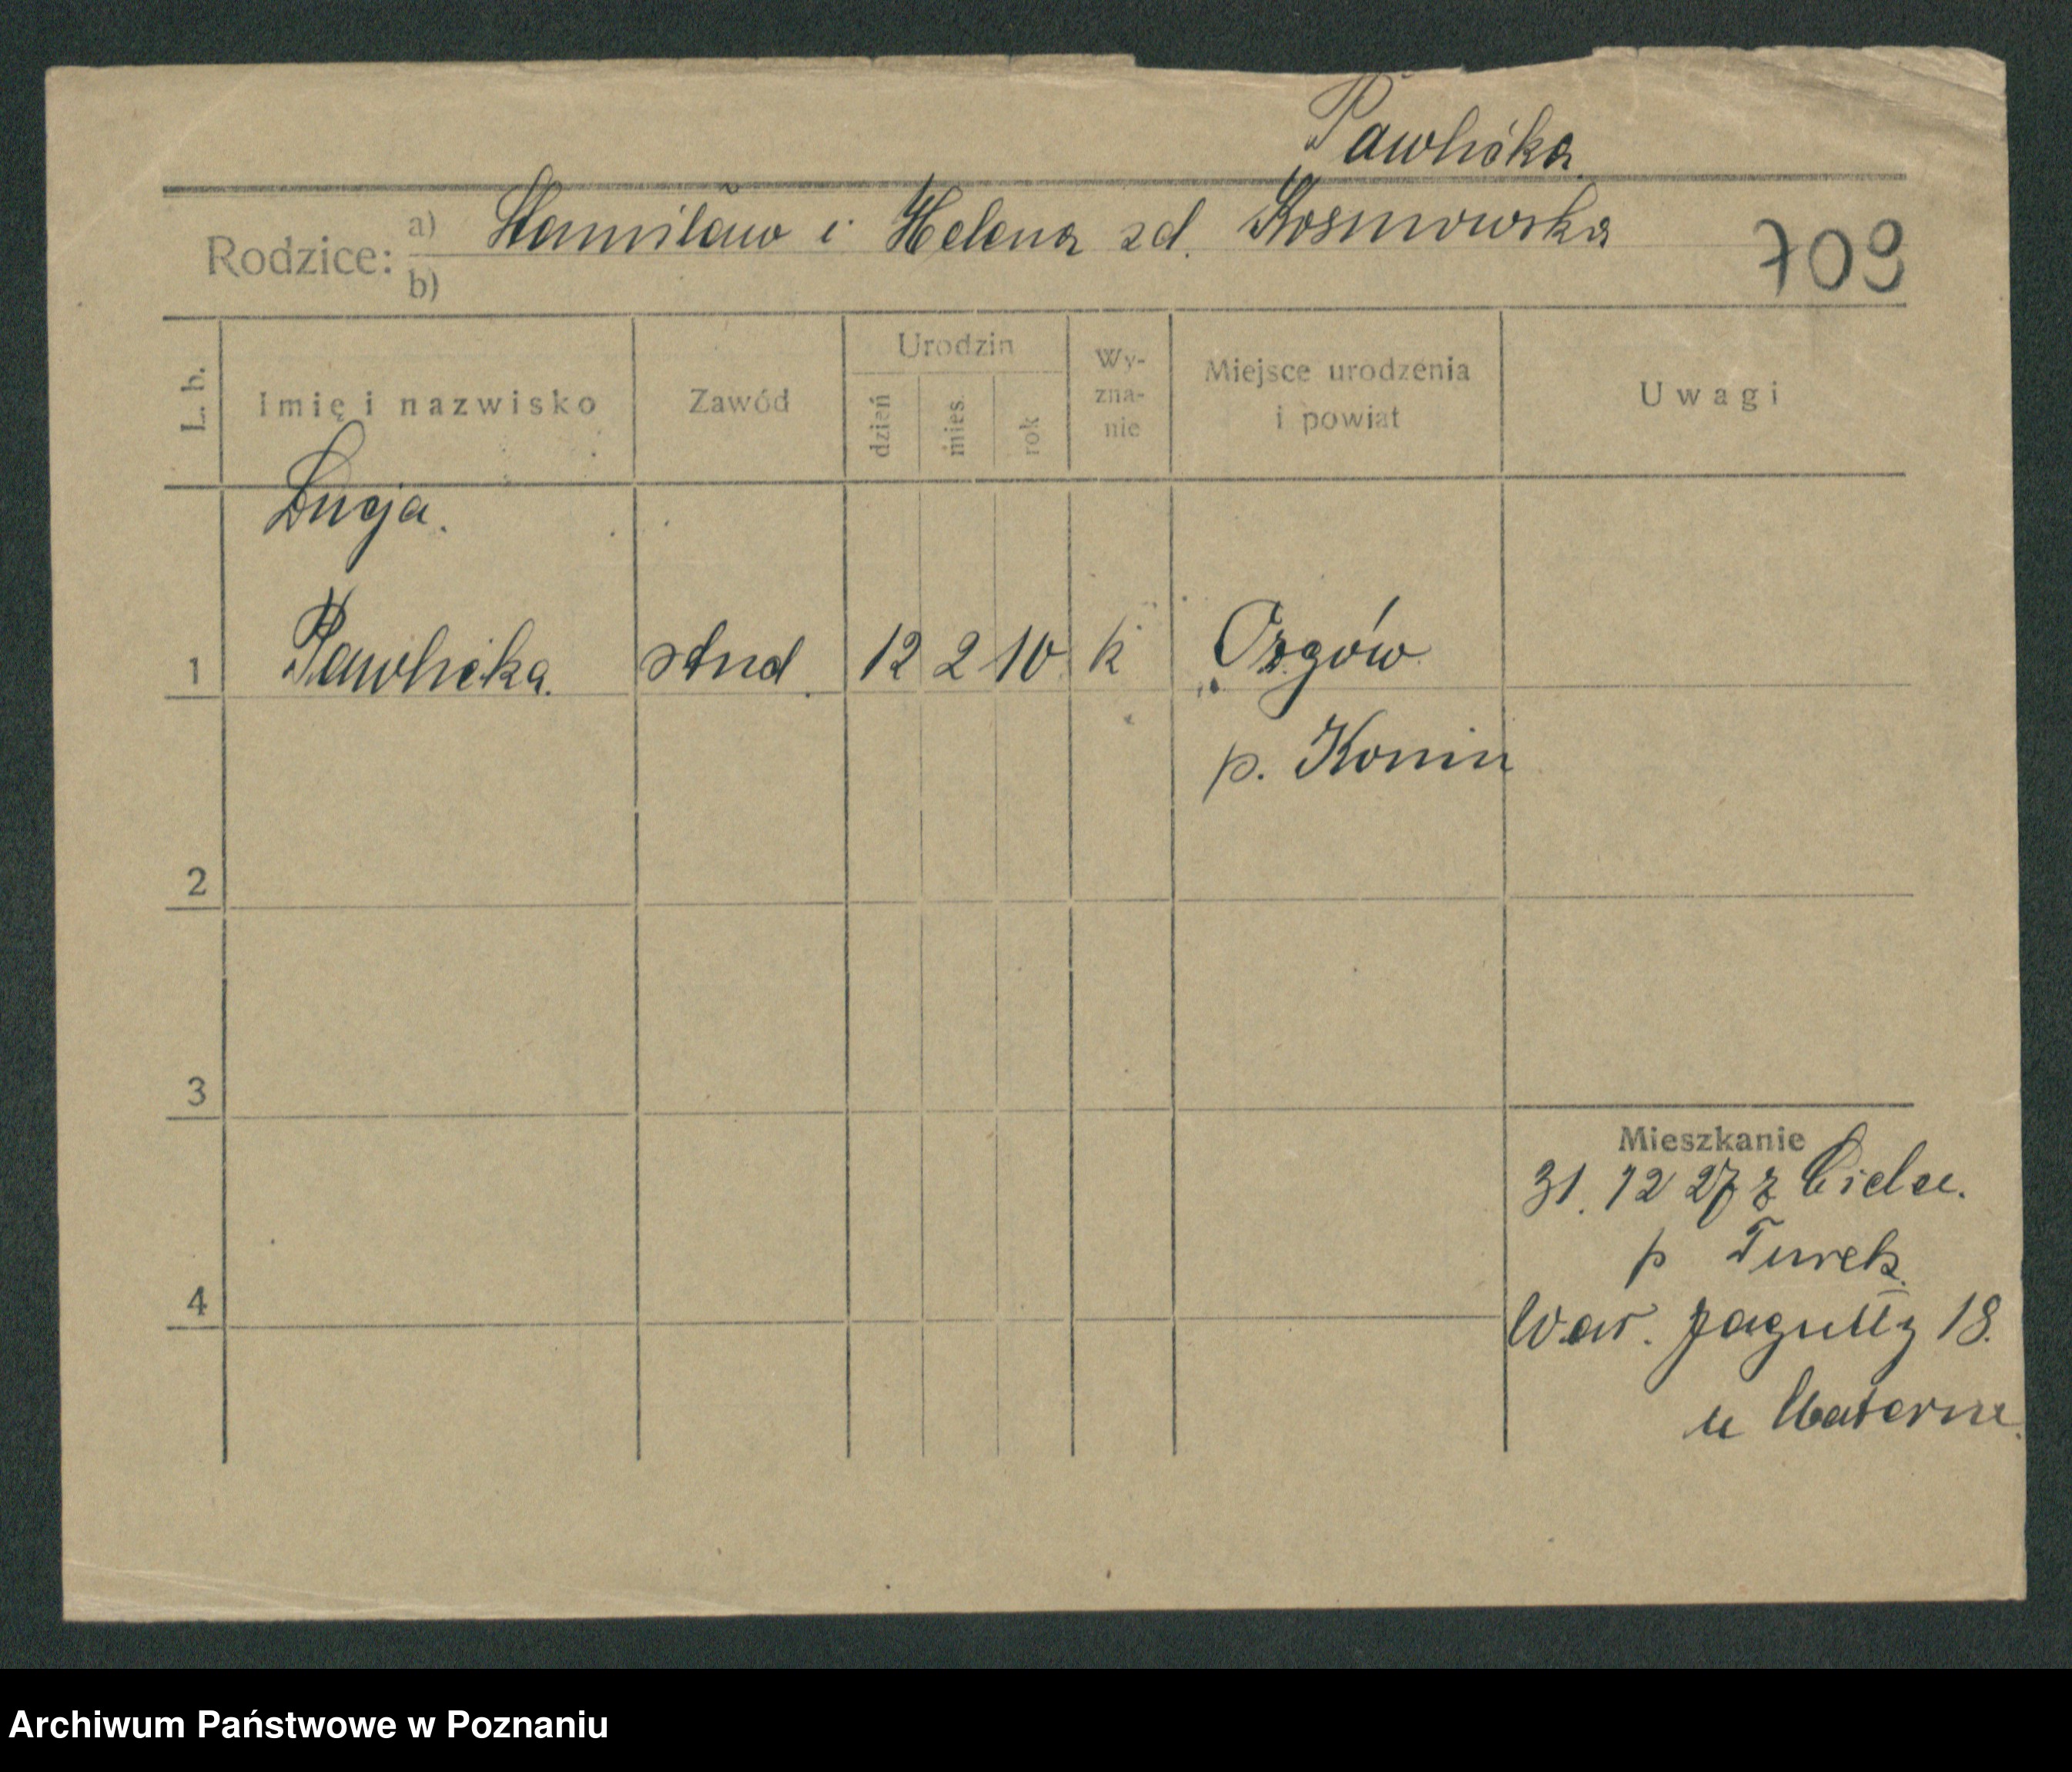 Pawlicka
Rodzice: a) Stanisław i Helena zd. Kosmowska
b)
709
L. b. Imię i nazwisko Zawód Urodzin dzień mies. rok Wy-zna-nie Miejsce urodzenia i powiat Uwagi
Łucja.
1 Pawlicka. stud. 12 2 10 k Ozgów
p. Konin
2
3
Mieszkanie
31. 12 27 z Cielce.
p Turek.
4
War. Jagiełły 18.
u Materne.
Archiwum Państwowe w Poznaniu